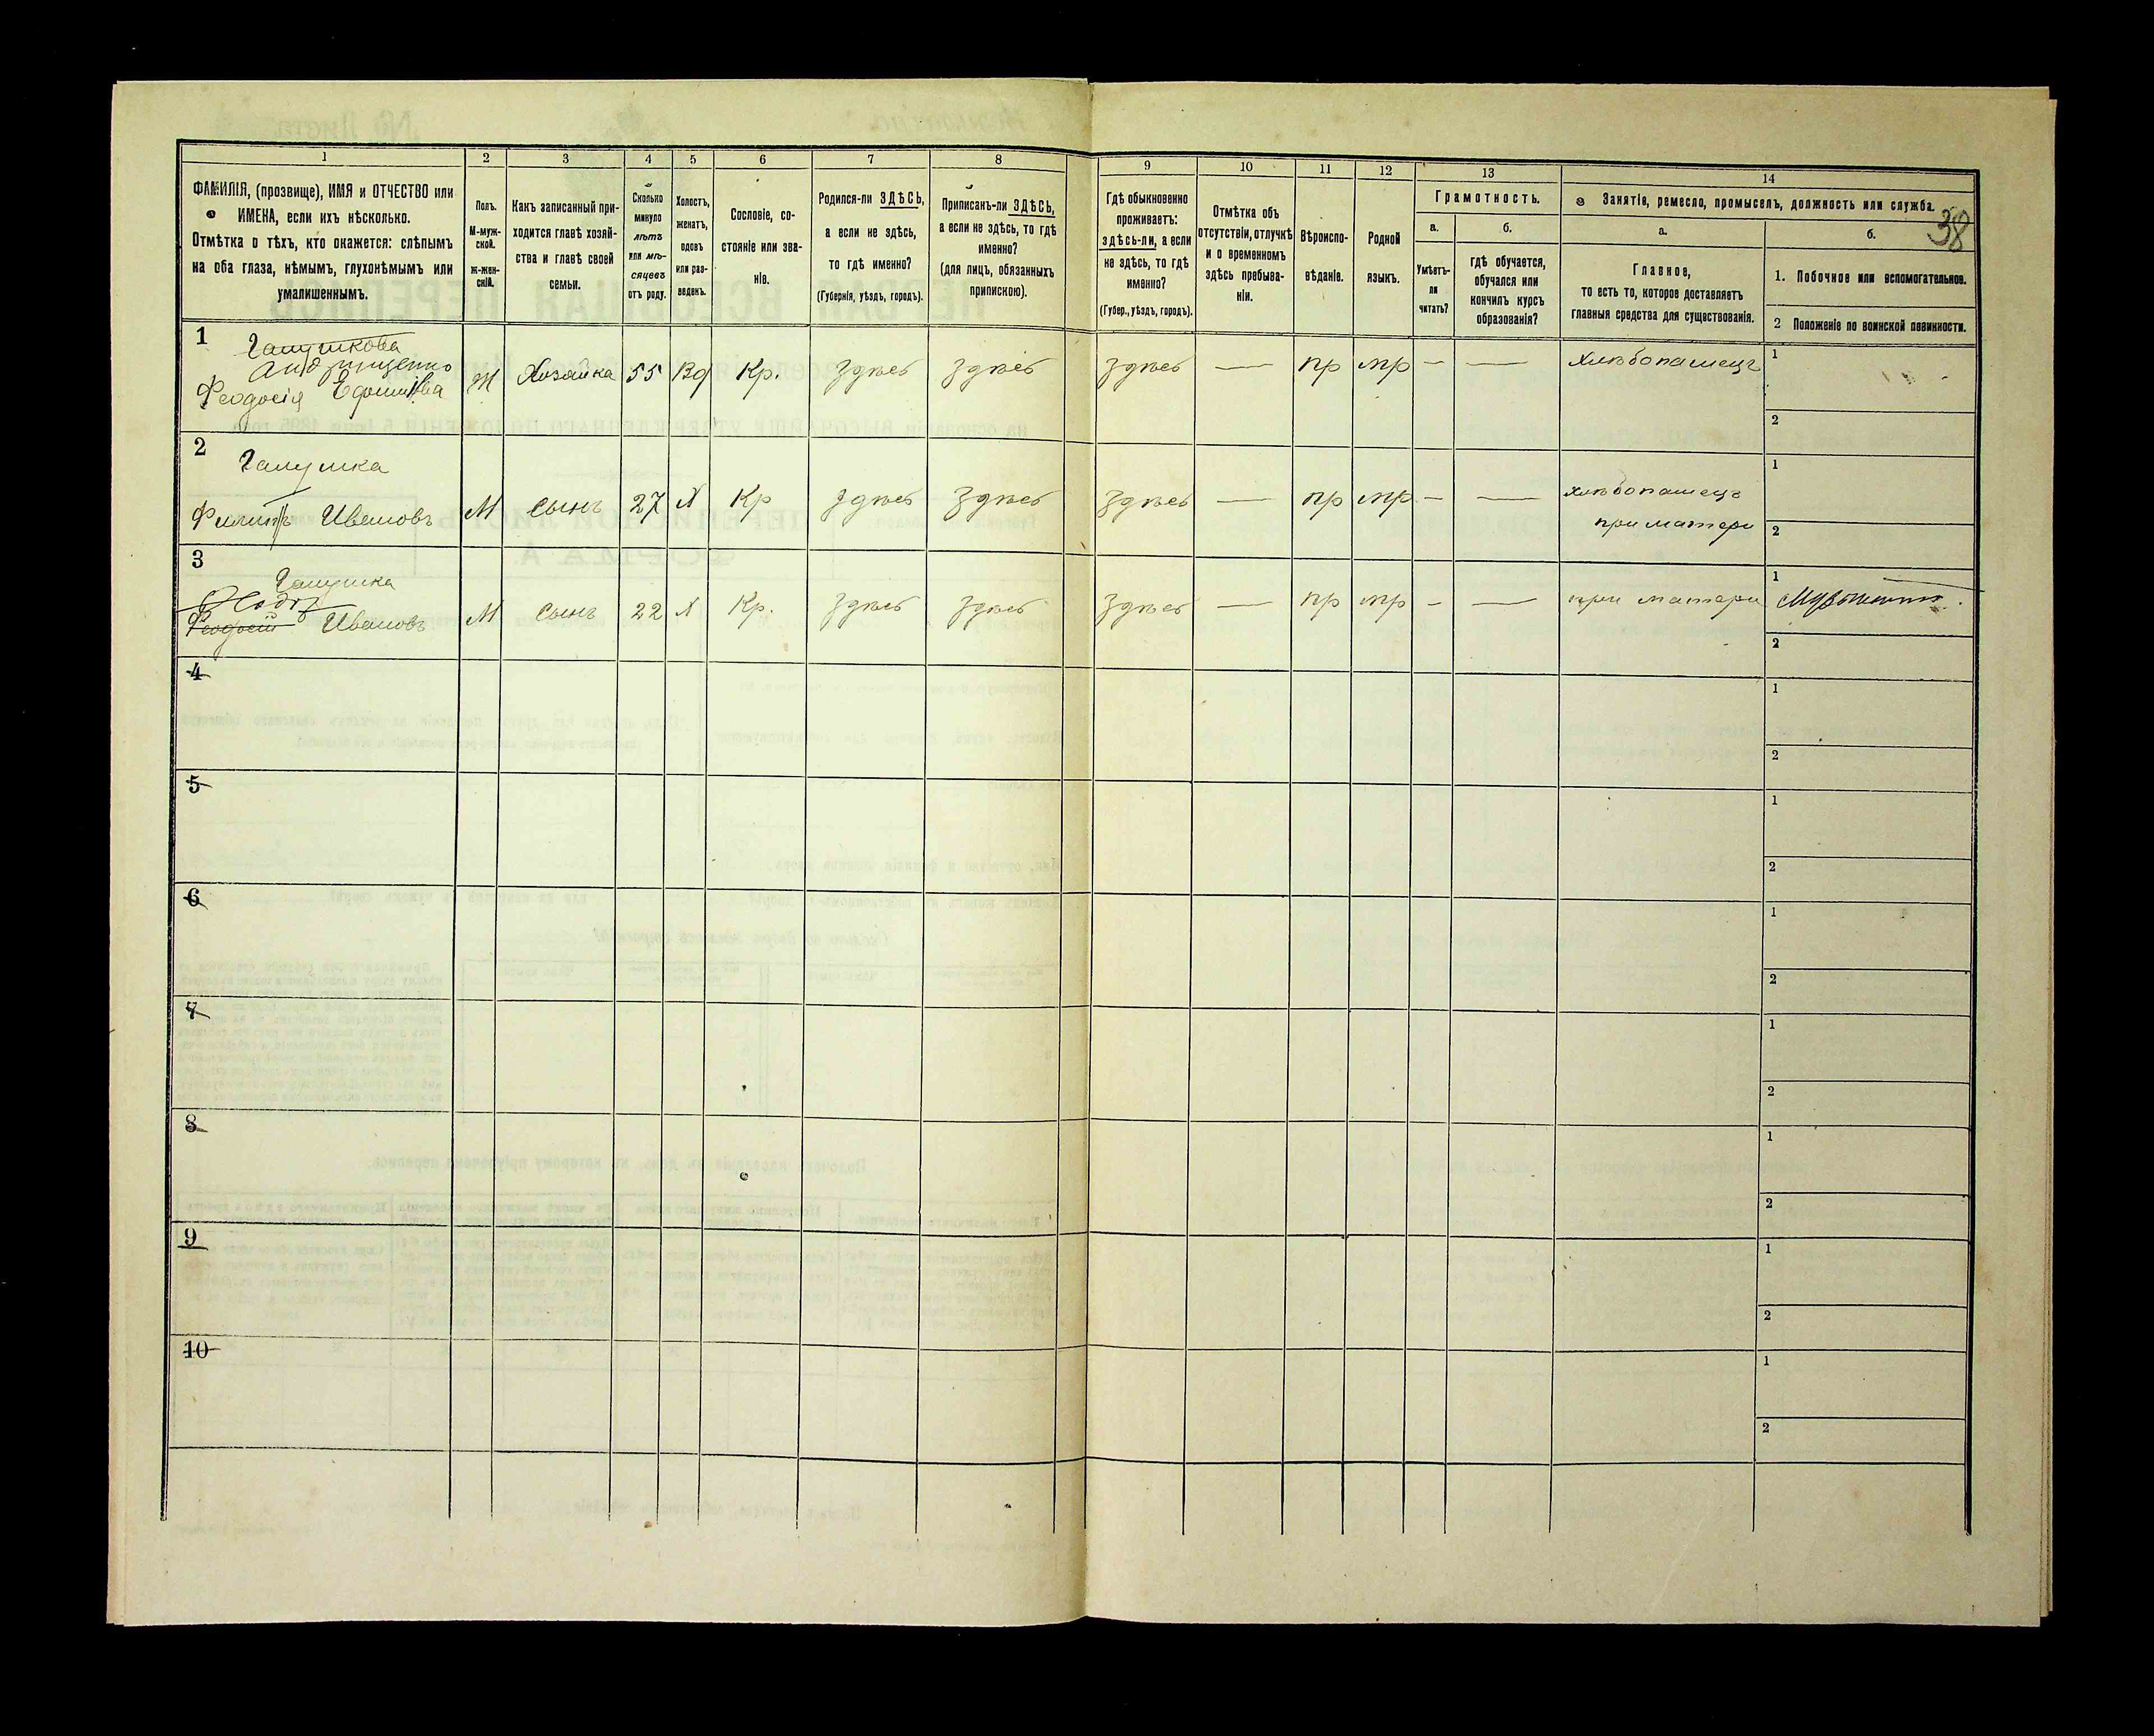 38
1 2 3 4 5 6 7 8 9 10 11 12 13 14
ФАМИЛІЯ, (прозвище), ИМЯ и ОТЧЕСТВО или
ИМЕНА, если ихъ нѣсколько.
Отмѣтка о тѣхъ, кто окажется: слѣпымъ
на оба глаза, нѣмымъ, глухонѣмымъ или
умалишеннымъ.
Полъ.
М-муж-
ской.
ж-жен-
скій.
Какъ записанный при-
ходится главѣ хозяй-
ства и главѣ своей
семьи.
Сколько
минуло
лѣтъ
или мѣ-
сяцевъ
отъ роду.
Холостъ,
женатъ,
вдовъ
или раз-
веденъ.
Сословіе, со-
стояніе или зва-
ніе.
Родился-ли ЗДѢСЬ,
а если не здѣсь,
то гдѣ именно?
(Губернія, уѣздъ, городъ).
Приписанъ-ли ЗДѢСЬ,
а если не здѣсь, то гдѣ
именно?
(для лицъ, обязанныхъ
припискою).
Гдѣ обыкновенно
проживаетъ:
здѣсь-ли, а если
не здѣсь, то гдѣ
именно?
(Губер., уѣздъ, городъ).
Отмѣтка объ
отсутствіи, отлучкѣ
и о временномъ
здѣсь пребыва-
ніи.
Вѣроиспо-
вѣданіе.
Родной
языкъ.
Грамотность.
а.
Умѣетъ-
ли
читать?
б.
гдѣ обучается,
обучался или
кончилъ курсъ
образованія?
Занятіе, ремесло, промыселъ, должность или служба.
а.
Главное,
то есть то, которое доставляетъ
главныя средства для существованія.
б.
1. Побочное или вспомогательное.
2 Положеніе по воинской повинности.
1
Галушкова
Андрющенко
Феодосія Ефимова Ж Хозяйка 55 Вд Кр. Здѣсь Здѣсь Здѣсь — пр мр — — хлѣбопашецъ
1
2
2
Галушка
Филипъ Ивановъ М сынъ 27 Х Кр Здѣсь Здѣсь Здѣсь — пр мр — — хлѣбопашецъ
при матери
1
2
3
Галушка
Феодосій Ивановъ М сынъ 22 Х Кр. Здѣсь Здѣсь Здѣсь — пр мр — — при матери
1
2
4
1
2
5
1
2
6
1
2
7
1
2
8
1
2
9
1
2
10
1
2